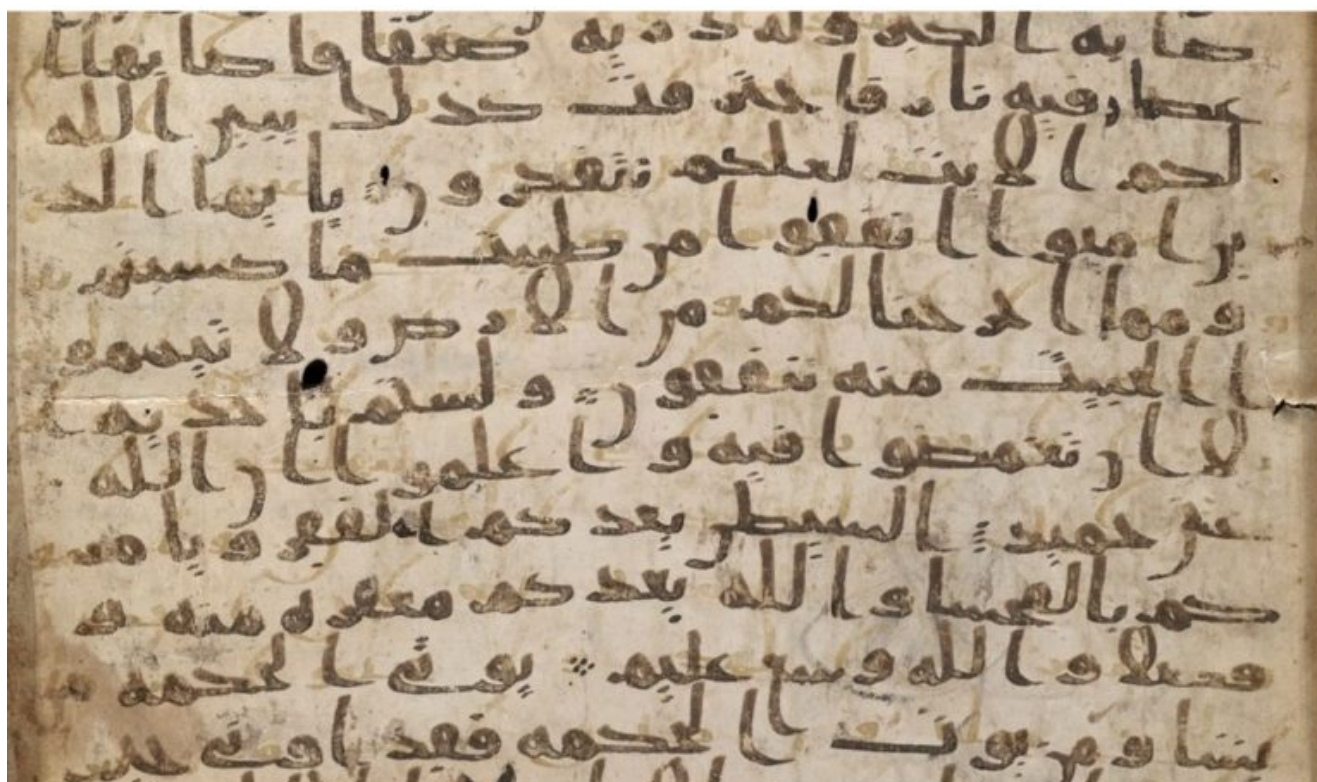 صابه الكبر وله ذريه ضعفا فاصابها ا
عصار فيه نار فاحترقت كذلك يبين الله
لكم الايت لعلكم تتفكرون يايها الذ
ين امنوا انفقوا من طيبت ما كسبتم
ومما اخرجنا لكم من الارض ولا تيممو
ا الخبيث منه تنفقون ولستم باخذيه ا
لا ان تغمضوا فيه واعلموا ان الله
غني حميد الشيطن يعدكم الفقر ويامر
كم بالفحشا والله يعدكم مغفره منه و
فضلا والله وسع عليم يوتي الحكمه من
يشا ومن يوت الحكمه فقد اوتي خير